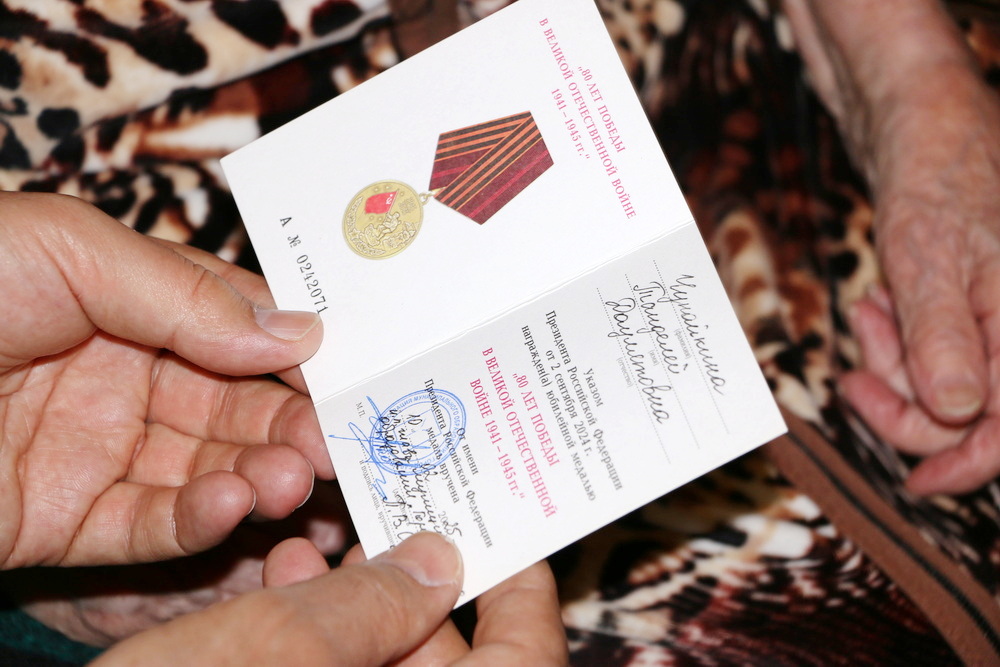 „80 ЛЕТ ПОБЕДЫ
В ВЕЛИКОЙ ОТЕЧЕСТВЕННОЙ ВОЙНЕ
1941 – 1945 гг.“
А № 0242071
Чукайкина
(фамилия)
(имя)
Даулятовна
(отчество)
Указом
Президента Российской Федерации
от 2 сентября 2024 г.
награжден(а) юбилейной медалью
„80 ЛЕТ ПОБЕДЫ
В ВЕЛИКОЙ ОТЕЧЕСТВЕННОЙ
ВОЙНЕ 1941 – 1945 гг.“
От имени
Президента Российской Федерации
медаль вручена
10 2025
М.П.